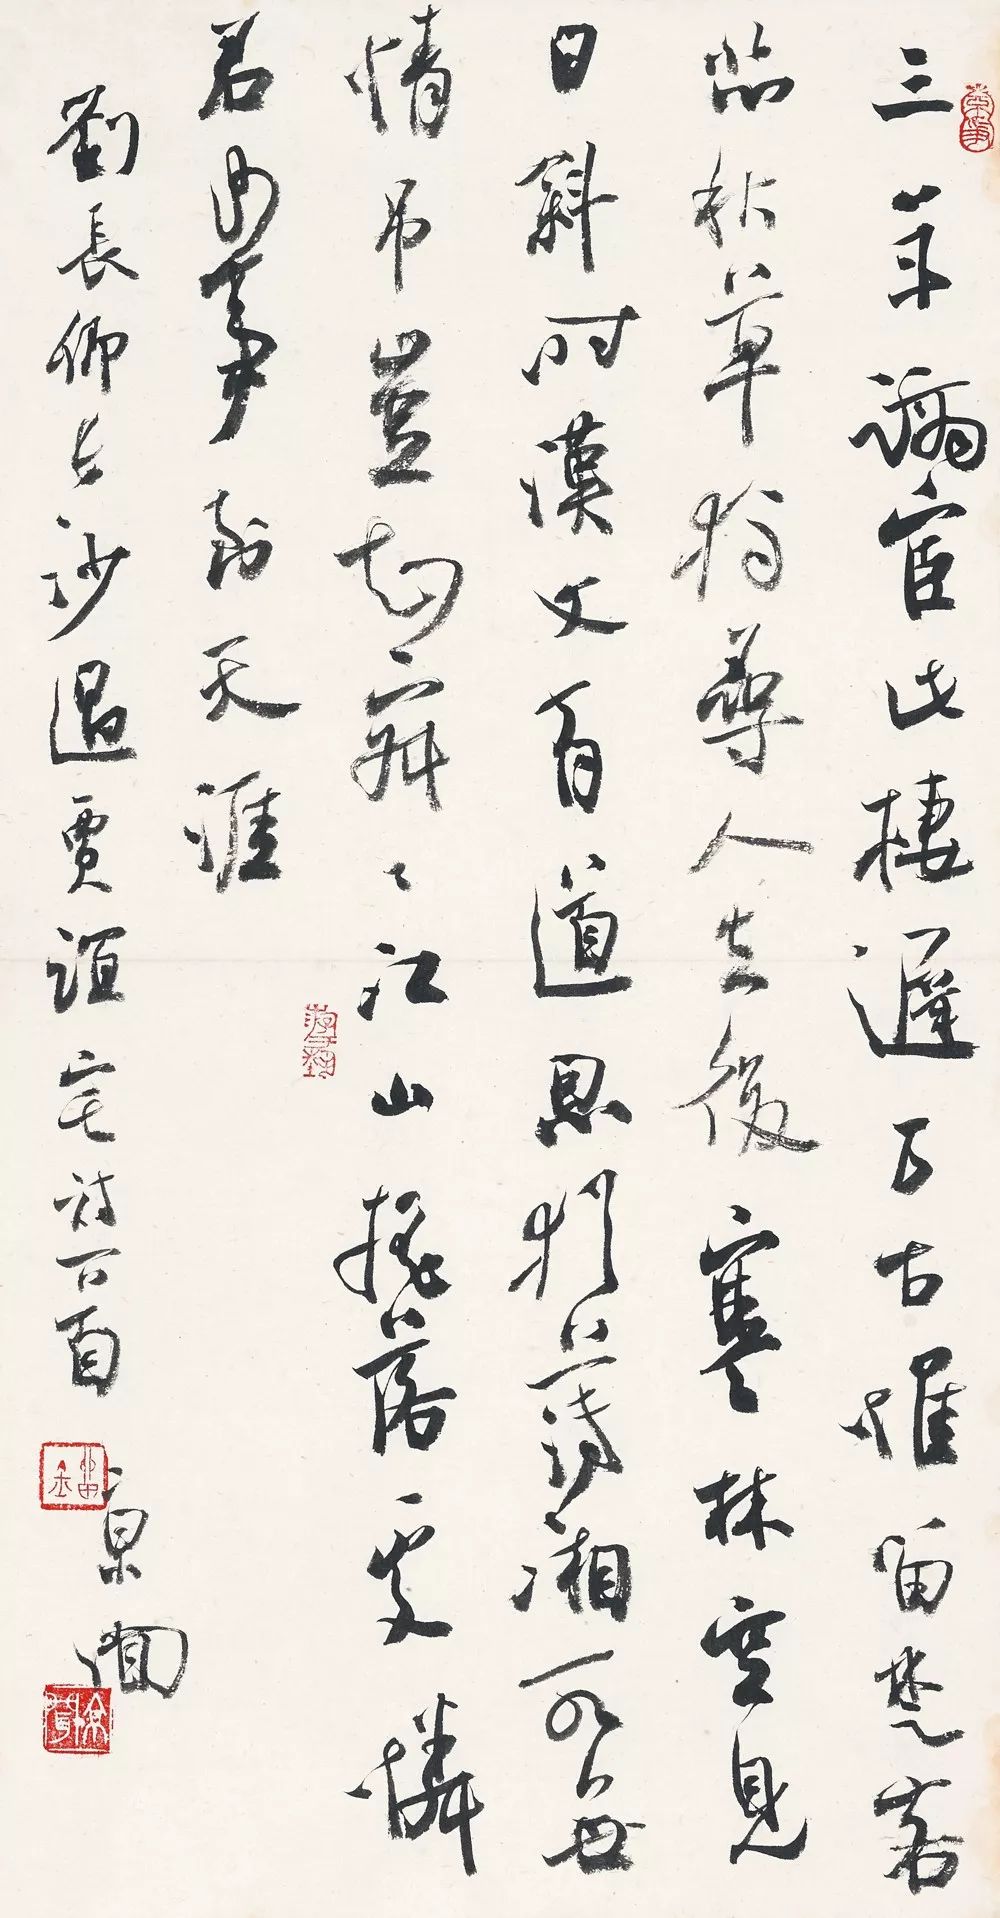 三年謫宦此棲遲万古惟留楚客
悲秋草獨尋人去後寒林空見
日斜時漢文有道恩猶薄湘水無
情吊豈知寂〻江山搖落處憐
君何事到天涯
劉長卿長沙過賈誼宅詩一首